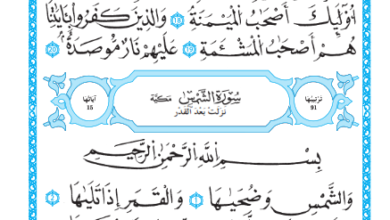 أُوْلَٰٓئِكَ أَصْحَٰبُ ٱلْمَيْمَنَةِ ۝١٨ وَٱلَّذِينَ كَفَرُوا۟ بِـَٔايَٰتِنَا
هُمْ أَصْحَٰبُ ٱلْمَشْـَٔمَةِ ۝١٩ عَلَيْهِمْ نَارٌ مُّؤْصَدَةٌۢ ۝٢٠
ترتيبها 91 سورة الشمس مكية آياتها 15
نزلت بعد القدر
بِسْمِ ٱللَّهِ ٱلرَّحْمَٰنِ ٱلرَّحِيمِ
وَٱلشَّمْسِ وَضُحَىٰهَا ۝١ وَٱلْقَمَرِ إِذَا تَلَىٰهَا ۝٢